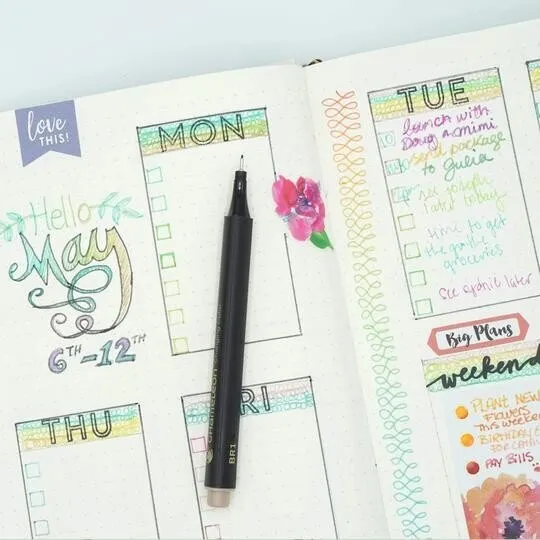 love
THIS!
Hello
May
6TH-12TH
MON
THU
FRI
chameleon
BR1
TUE
lunch with
Doug & mimi
send package
to Julia
see joseph
later today
time to get
groceries
see sophie later
Big Plans
weekend
PLANT NEW
Flowers
This weekend
BIRTHDAY
FOR
PAY BILLS